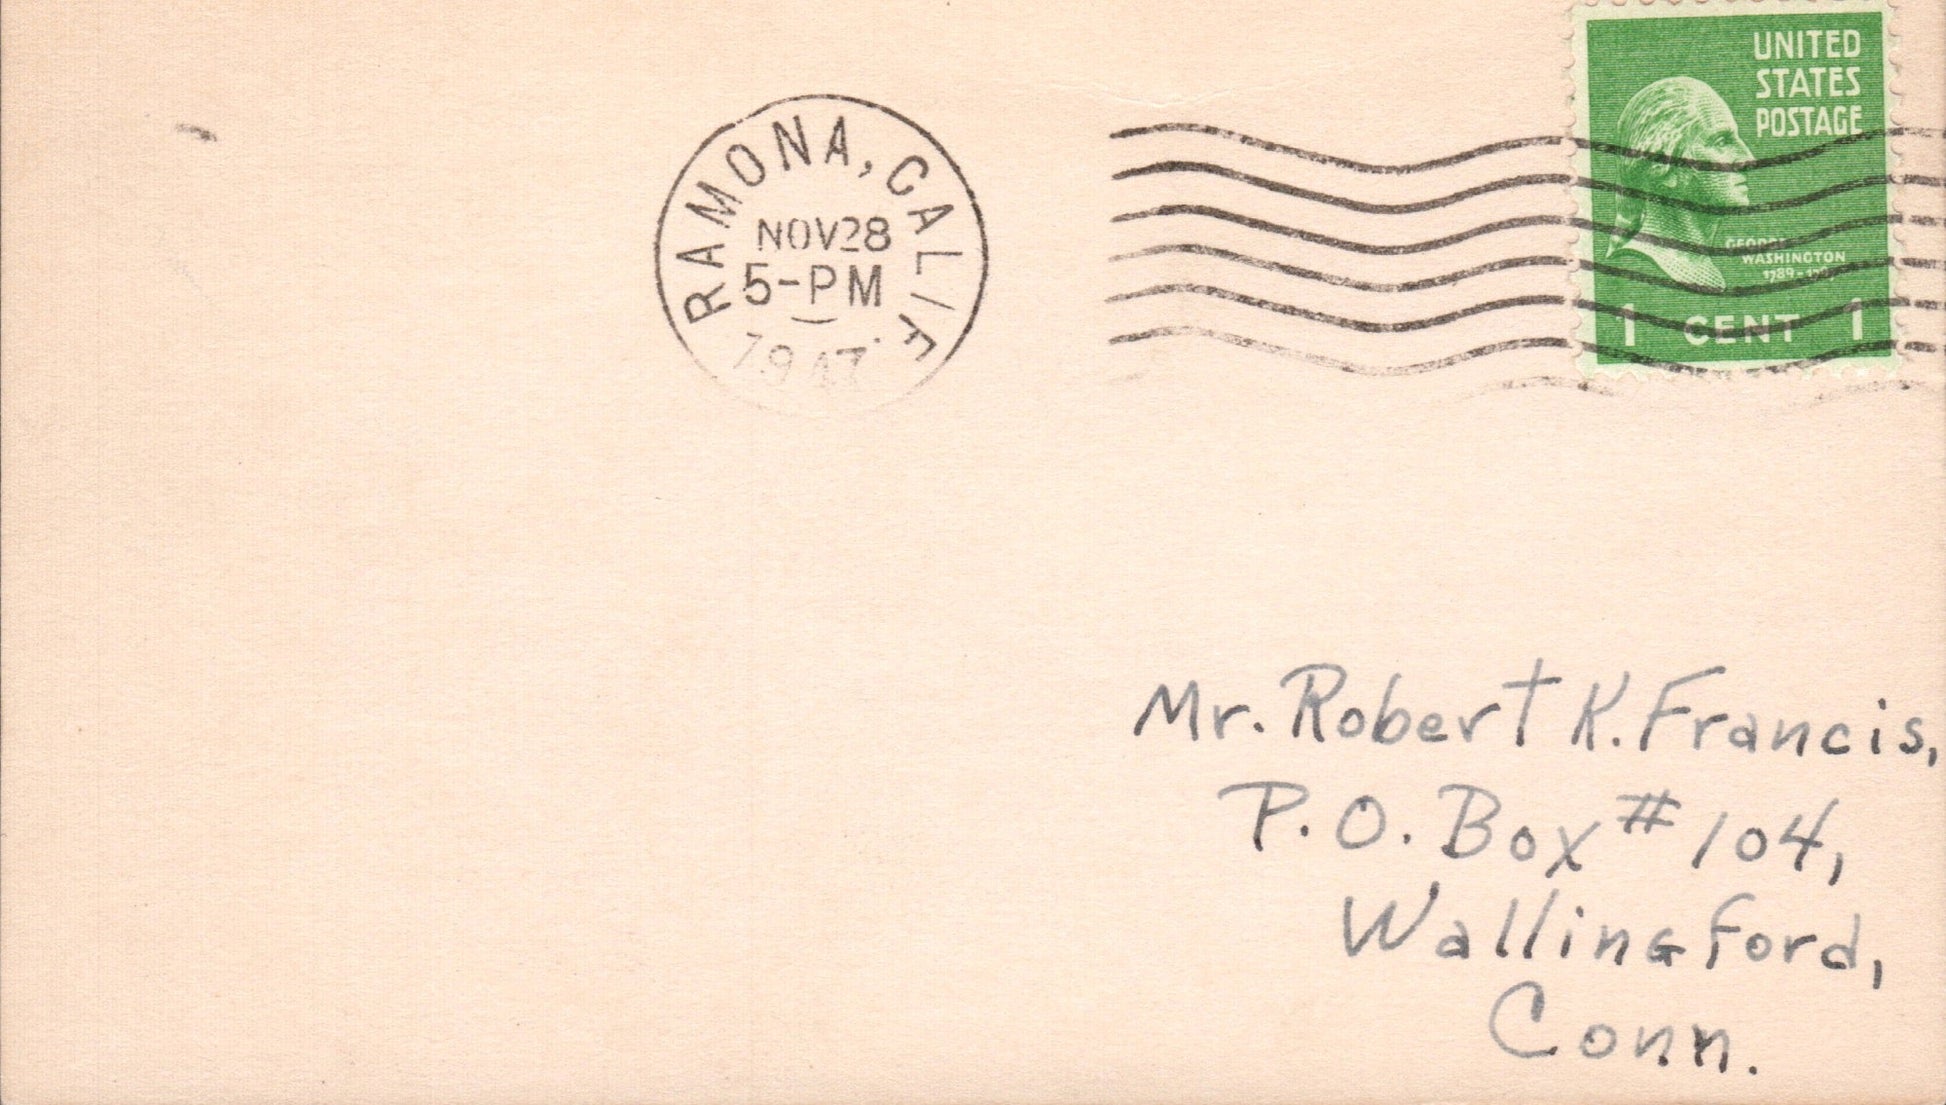 UNITED
STATES
POSTAGE
GEORGE
WASHINGTON
1789-
1 CENT 1
RAMONA, CALIF.
NOV 28
5-PM
1947
Mr. Robert K. Francis,
P.O. Box #104,
Wallingford,
Conn.